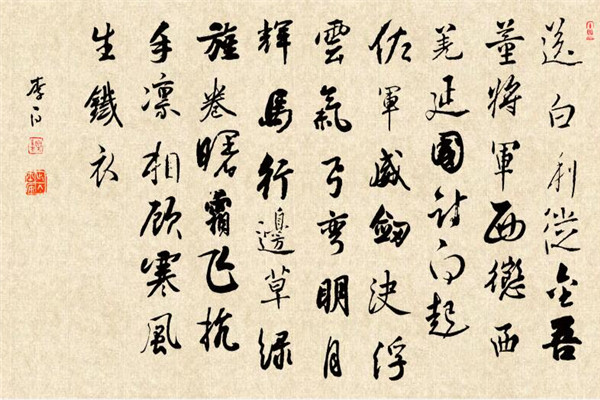 送白利從金吾
董將軍西懲西
羌延國討白起
佐軍威劒決浮
雲氣弓彎明月
輝馬行邊草緑
旌卷曙霜飛抗
手凛相顧寒風
生鐵衣
李白